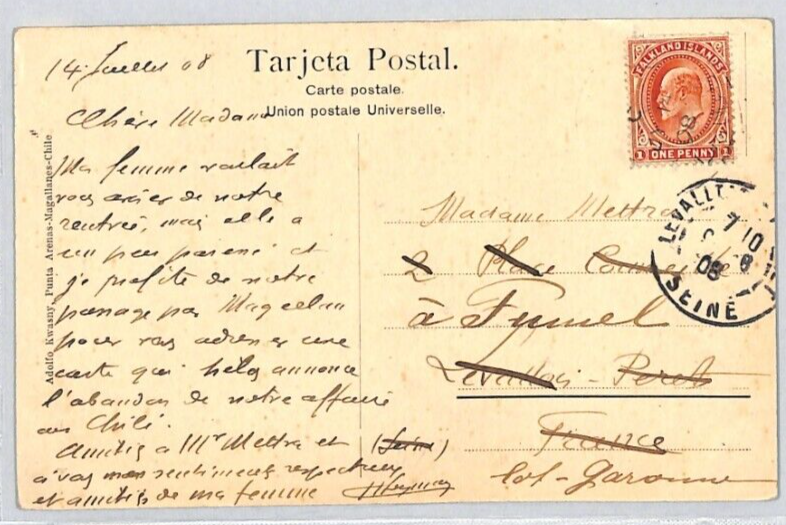 Tarjeta Postal.
Carte postale.
Union postale Universelle.
14 Juillet 08
Chère Madame
Ma femme voulait
vous aviser de notre
rentrée, mais elle a
un peu et
je profite de notre
passage par Magellan
pour vous adresser une
carte qui hélas annonce
l'abandon de notre affaire
au Chili.
Amitiés à Mr Mettra et
à vous mes sentiments respectueux
et amitiés de ma femme
Adolfo Kwasny, Punta Arenas-Magallanes-Chile
FALKLAND ISLANDS
1 ONE PENNY 1
LEVALLOIS
7 10
08
SEINE
Madame Mettra
2 Place
à Fumel
Levallois-Perret
(Seine)
France
Lot-Garonne